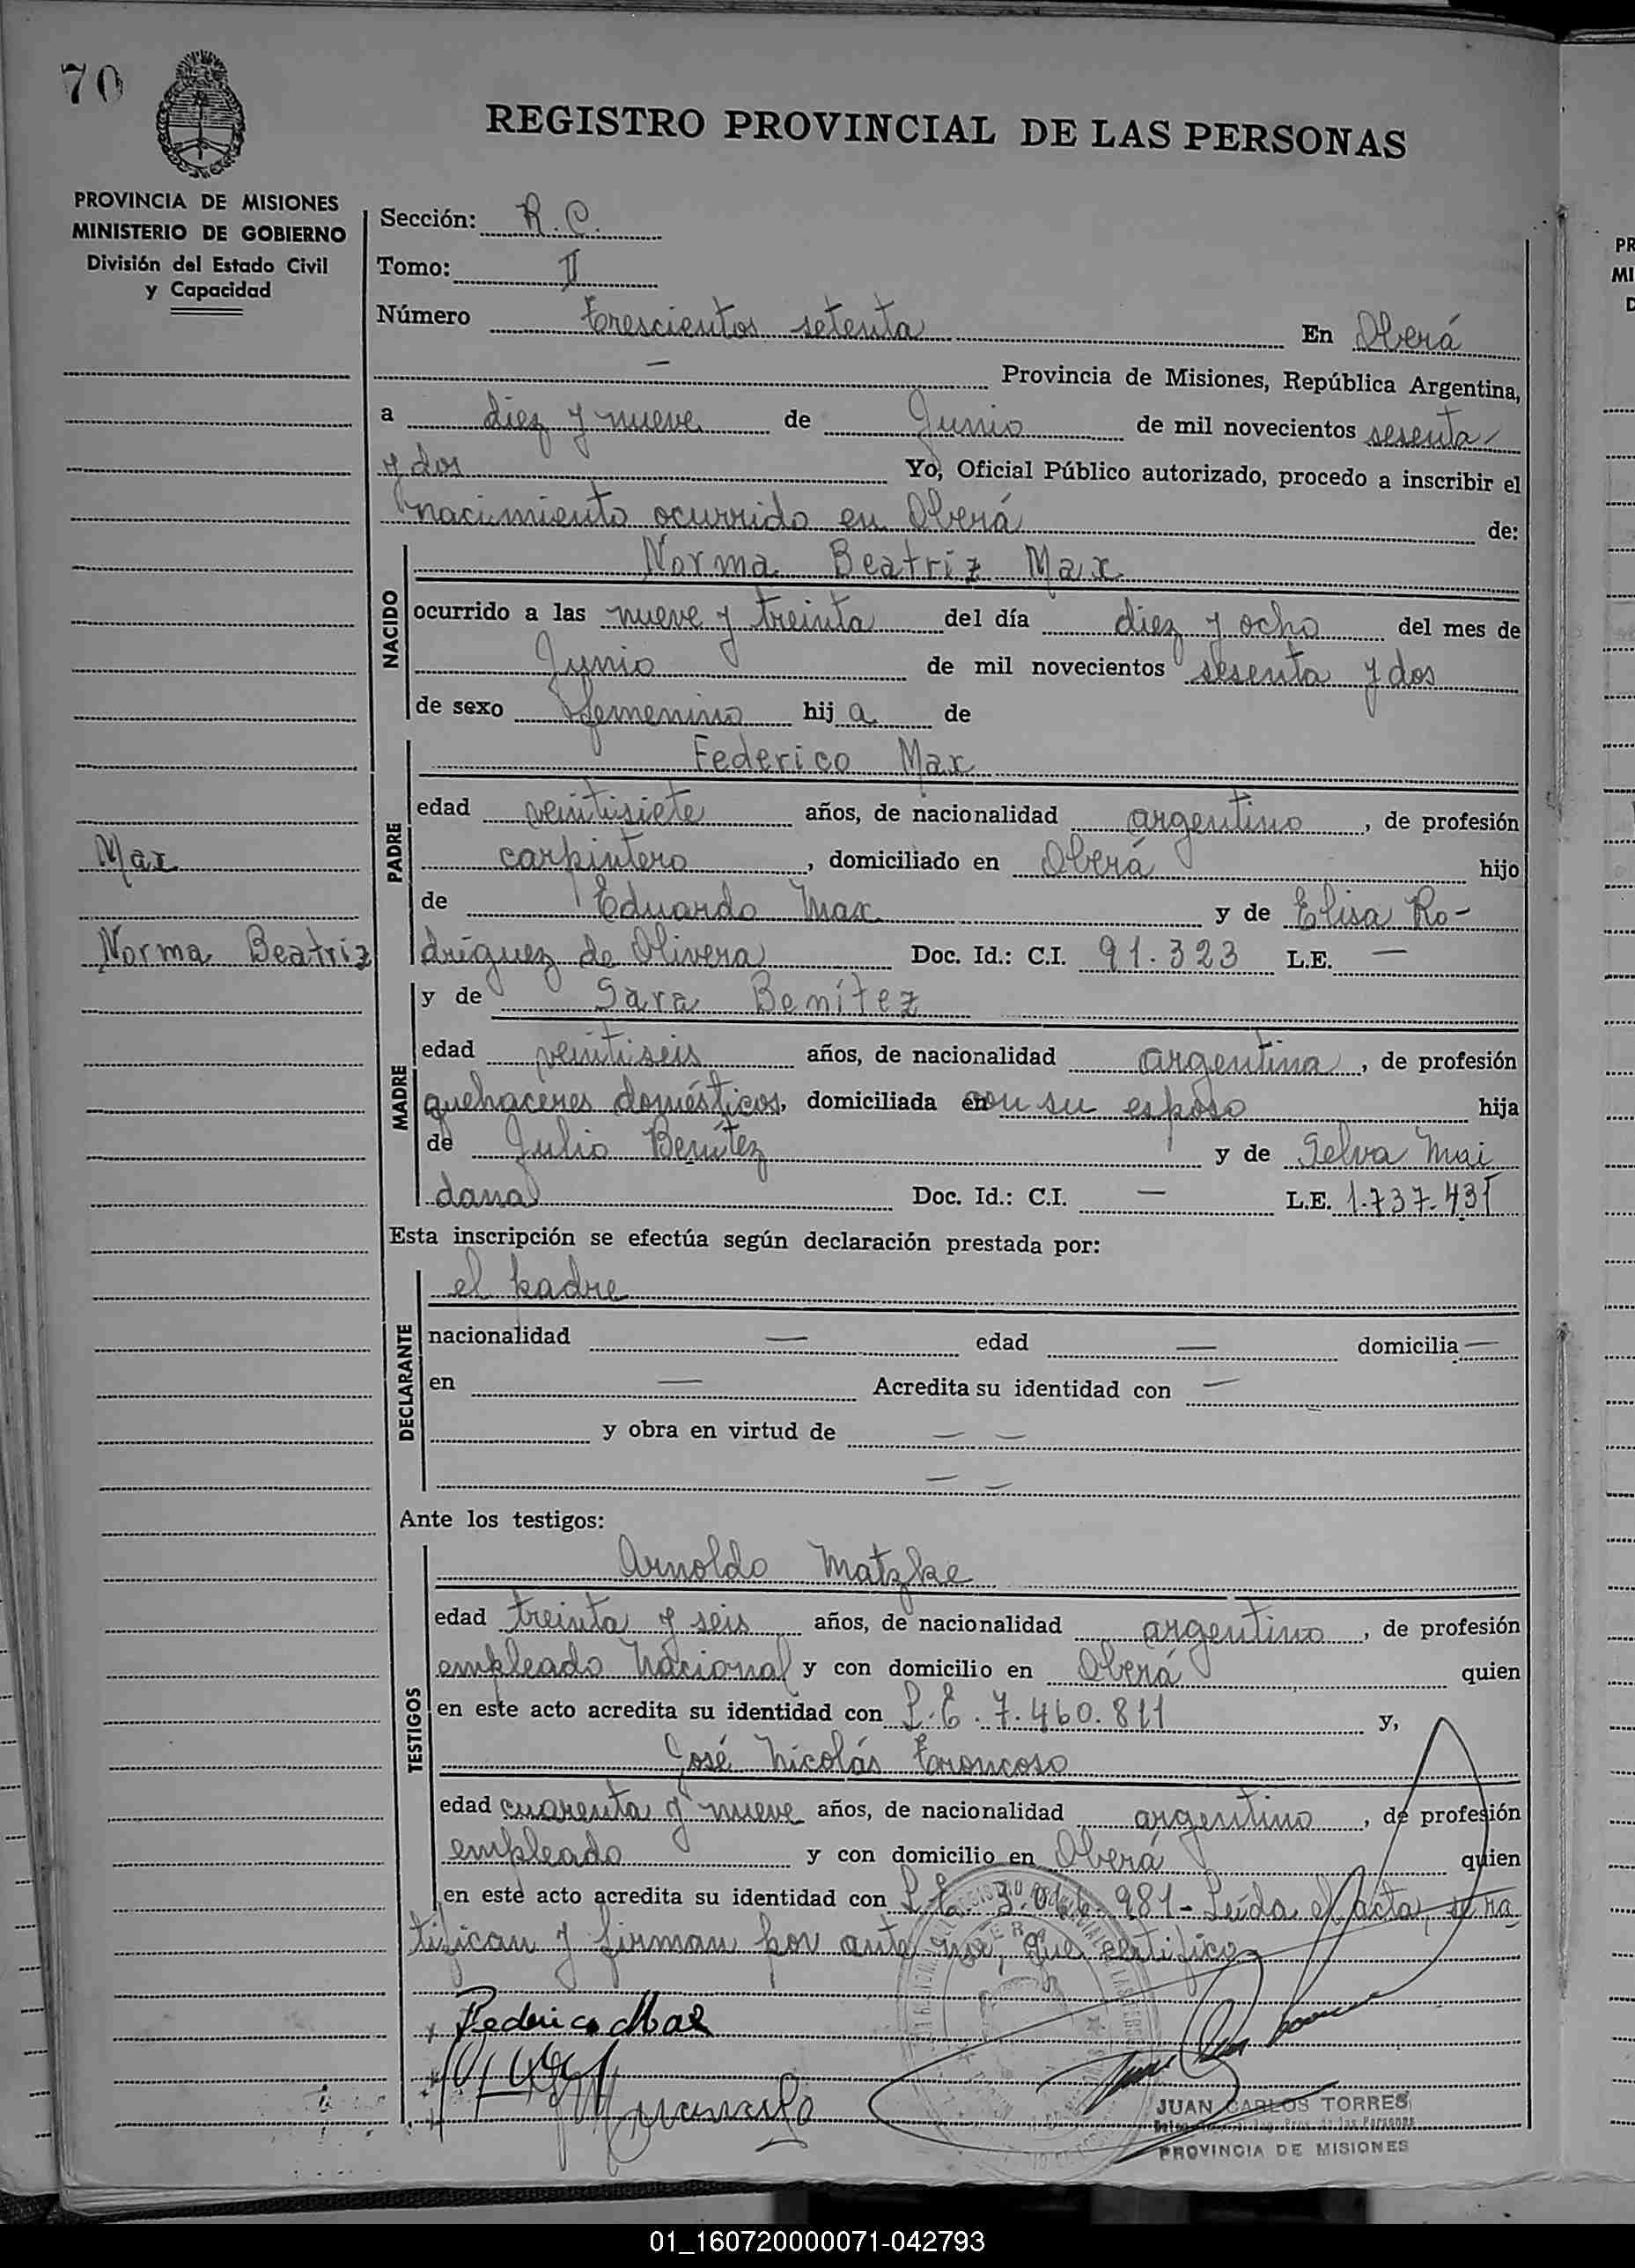 70
REGISTRO PROVINCIAL DE LAS PERSONAS
PROVINCIA DE MISIONES
MINISTERIO DE GOBIERNO
División del Estado Civil
y Capacidad
Sección: R. C.
Tomo: II
Número trescientos setenta En Oberá
— Provincia de Misiones, República Argentina,
a diez y nueve de Junio de mil novecientos sesenta
y dos Yo, Oficial Público autorizado, procedo a inscribir el
nacimiento ocurrido en Oberá de:
NACIDO
Norma Beatriz Max
ocurrido a las nueve y treinta del día diez y ocho del mes de
Junio de mil novecientos sesenta y dos
de sexo femenino hij a de
PADRE
Federico Max
edad veintisiete años, de nacionalidad argentino, de profesión
carpintero, domiciliado en Oberá hijo
de Eduardo Max y de Elisa Ro-
driguez de Olivera Doc. Id.: C.I. 91.323 L.E. —
Max
Norma Beatriz
MADRE
y de Sara Benítez
edad veintiseis años, de nacionalidad argentina, de profesión
quehaceres domésticos, domiciliada en con su esposo hija
de Julio Benítez y de Selva Mai
dana Doc. Id.: C.I. — L.E. 1.737.431
Esta inscripción se efectúa según declaración prestada por:
DECLARANTE
el padre
nacionalidad — edad — domicilia —
en — Acredita su identidad con —
y obra en virtud de — —
— —
Ante los testigos:
TESTIGOS
Arnoldo Matzke
edad treinta y seis años, de nacionalidad argentino, de profesión
empleado Nacional y con domicilio en Oberá quien
en este acto acredita su identidad con L.E. 7.460.811 y,
José Nicolás Troncoso
edad cuarenta y nueve años, de nacionalidad argentino, de profesión
empleado y con domicilio en Oberá quien
en este acto acredita su identidad con L.E. 3.066.981- Leída el acta, se ra
tifican y firman por ante mí, que certifico
Federico Max
JUAN CARLOS TORRES
PROVINCIA DE MISIONES
01_160720000071-042793